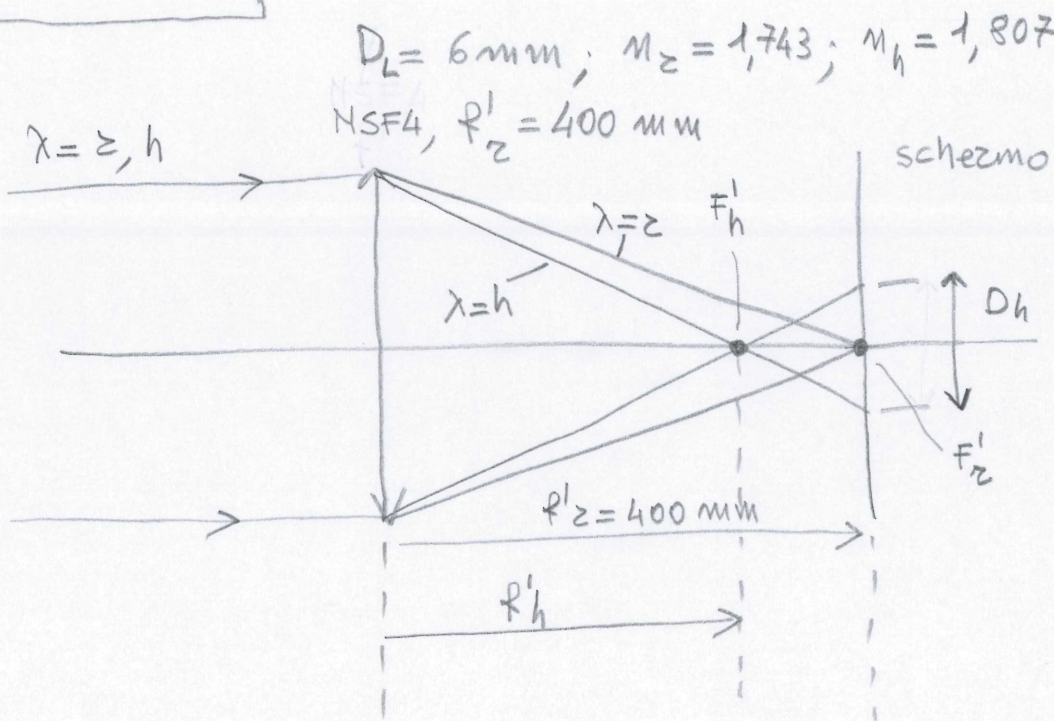 D_L = 6 mm ; n_r = 1,743 ; n_h = 1,807
NSF4, f'_r = 400 mm
λ = r, h
schermo
F'_h
λ = r
λ = h
D_h
F'_r
f'_r = 400 mm
f'_h